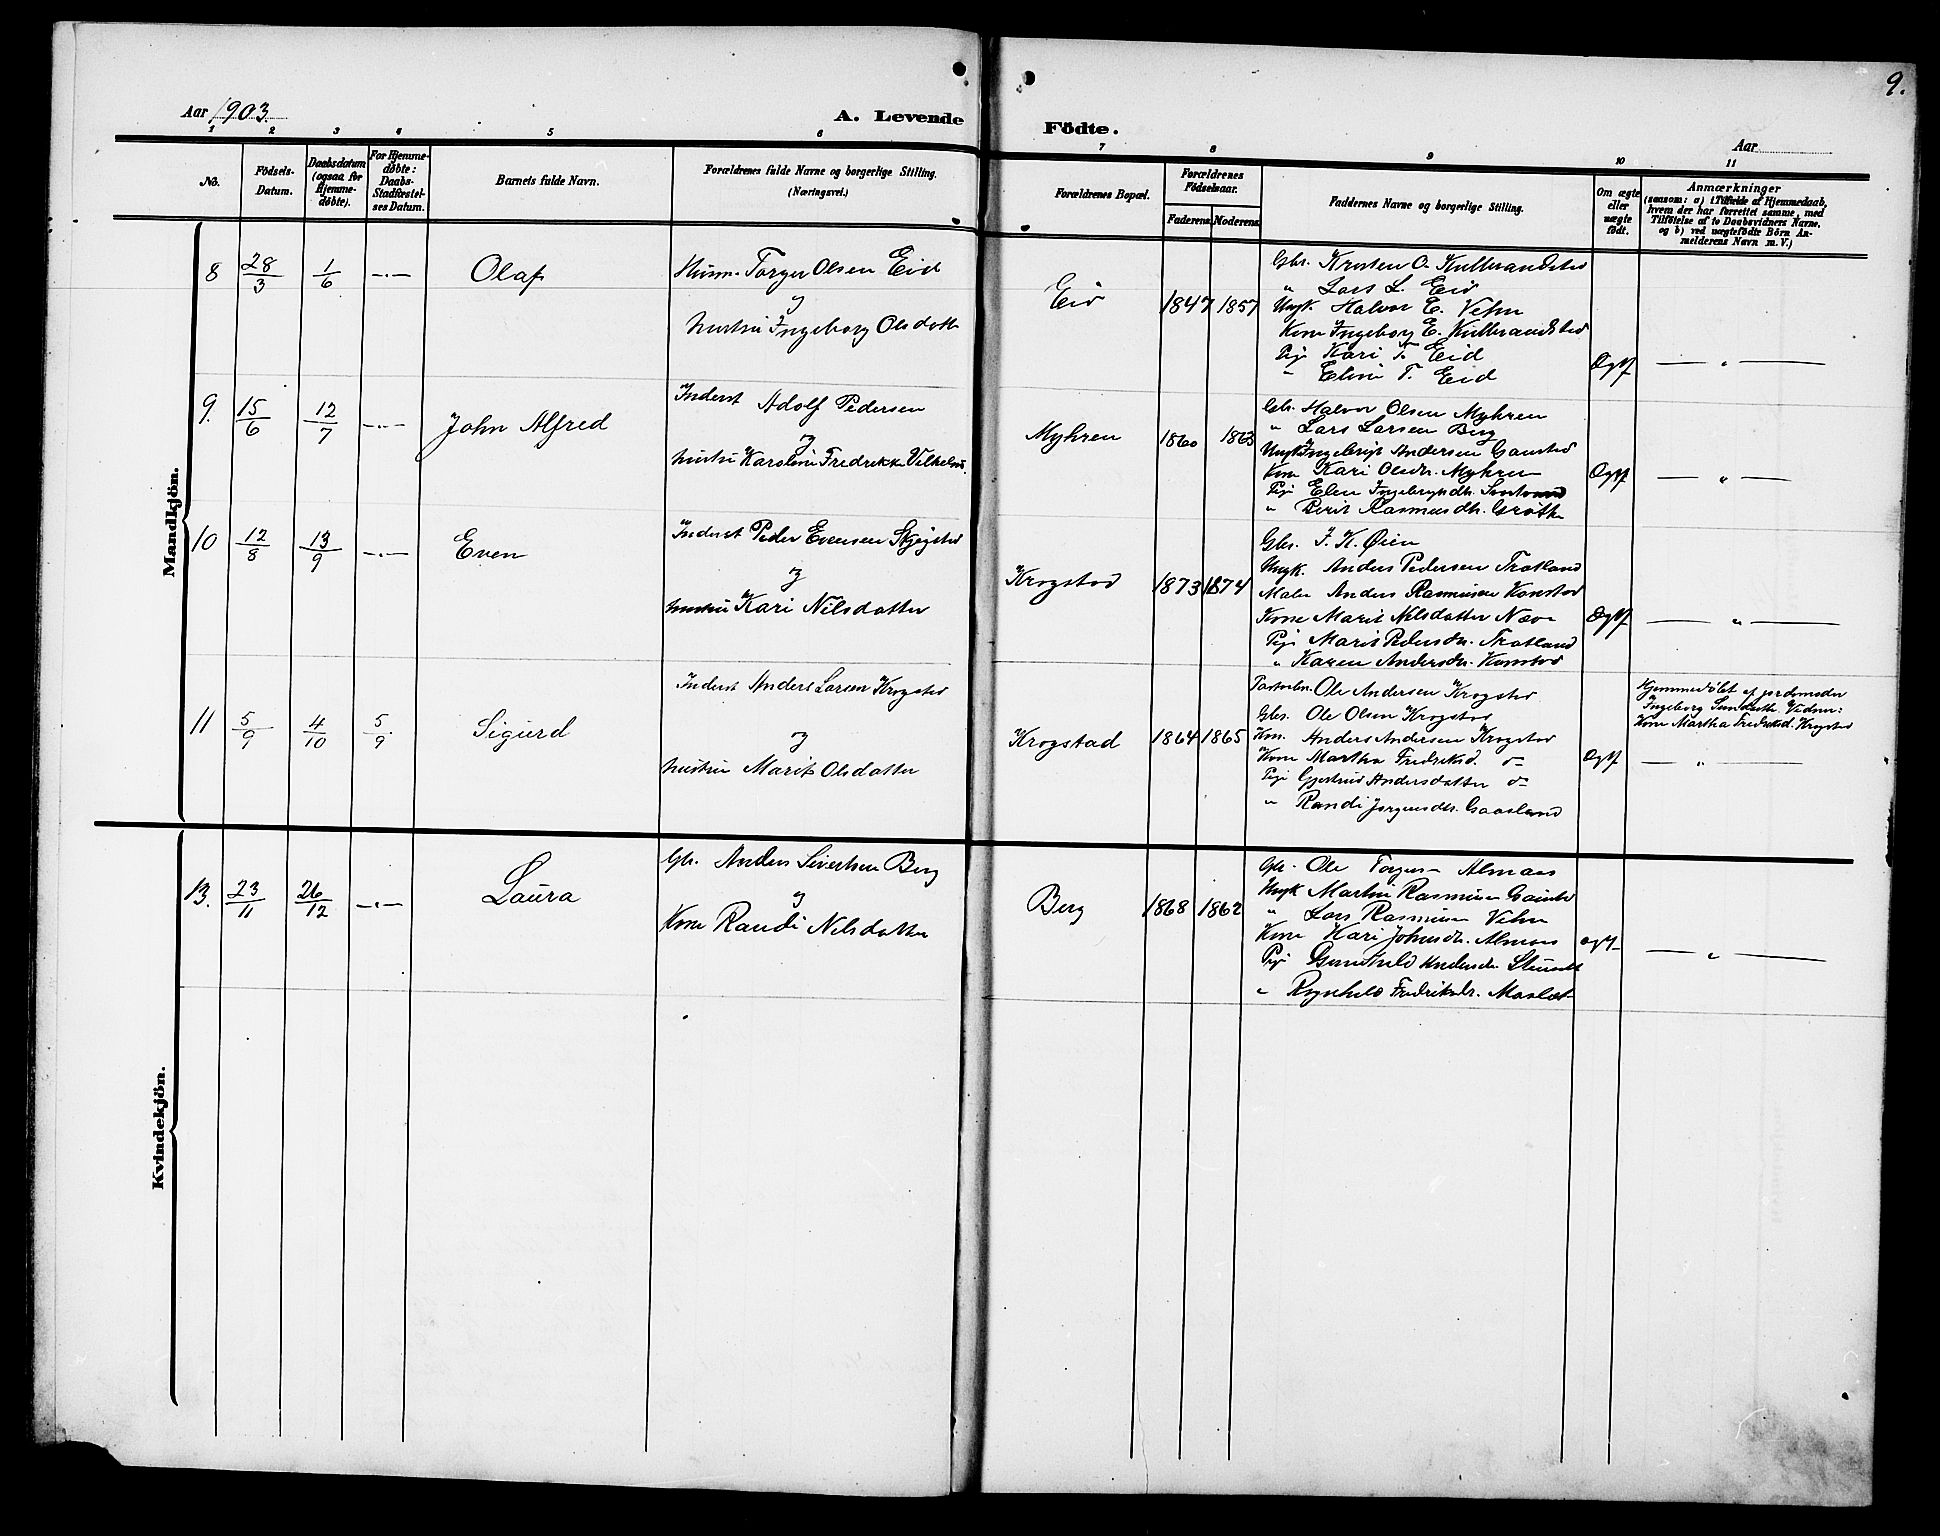 9.
Aar 1903.
A. Levende Födte.
Aar
1 2 3 4 5 6 7 8 9 10 11
No.
Födsels-Datum.
Daabsdatum (ogsaa for Hjemme-døbte).
For Hjemme-døbte: Daabs-Stadfæstel-ses Datum.
Barnets fulde Navn.
Forældrenes fulde Navne og borgerlige Stilling. (Næringsvei.)
Forældrenes Bopæl.
Forældrenes Födselsaar.
Faderens. Moderens.
Faddernes Navne og borgerlige Stilling.
Om ægte eller uægte født.
Anmærkninger
(saasom: a) i Tilfælde af Hjemmedaab, hvem der har forrettet samme, med Tilföielse af to Daabsvidners Navne, og b) ved uægtefødte Börn An-melderens Navn m. V.)
Mandkjön.
8 28/3 1/6 -"- Olaf
Husm. Torger Olsen Eid
og
hustru Ingeborg Olsdatt
Eid 1847 1857
Gbr. Kristen O. Kulbrandstad
" Lars L. Eid
Ungk. Halvor E. Vehn
Kone Ingeborg E. Kulbrandstad
Pige Kari T. Eid
" Elen T. Eid
Ægtf — " —
9. 15/6 12/7 -"- John Alfred
Inderst Adolf Pedersen
og
hustru Karoline Fredrikke Vilhelms.
Myhren 1860 1863
Gbr. Halvor Olsen Myhren
" Lars Larsen Berg
Ungk. Ingebrigt Andersen
Kone Kari Olsdr. Myhren
Pige Elen Ingebrigtsdtr.
" Berit Rasmusdtr.
Ægtf — " —
10 12/8 13/9 -"- Even
Inderst Peder Evensen
og
hustru Kari Nilsdatter
Krogstad 1873 1874
Gbr. I. K. Øien
Ungk. Anders Pedersen Trotland
Maler Anders Rasmussen Konstad
Kone Marit Nilsdatter
Pige Marit Pedersdr. Trotland
" Karen Andersdr. Konstad
Ægtf — " —
11 5/9 4/10 5/9 Sigurd
Inderst Anders Larsen Krogstad
og
hustru Marit Olsdatter
Krogstad 1864 1865
Ole Andersen Krogstad
Gbr. Ole Olsen Krogstad
Anders Andersen Krogstad
Kone Martha Fredriksd. do
Pige Gjertrud Andersdatter do
" Randi Jørgensdtr. Gaasland
Ægtf
Hjemmedøbt af jordmoder
Ingeborg Vidner:
Kone Martha Fredriksd. Krogstad
— " —
Kvindekjön.
13. 23/11 26/12 -"- Laura
Gbr. Anders Sivertsen Berg
og
Kone Randi Nilsdatter
Berg 1868 1862
Gbr. Ole Torgers Almaas
Ungk Martin Rasmussen
" Lars Rasmussen Vehn
Kone Kari Johnsdr. Almaas
Pige Gunhild Andersdr.
" Ragnhild Fredriksdr.
ægt — " —